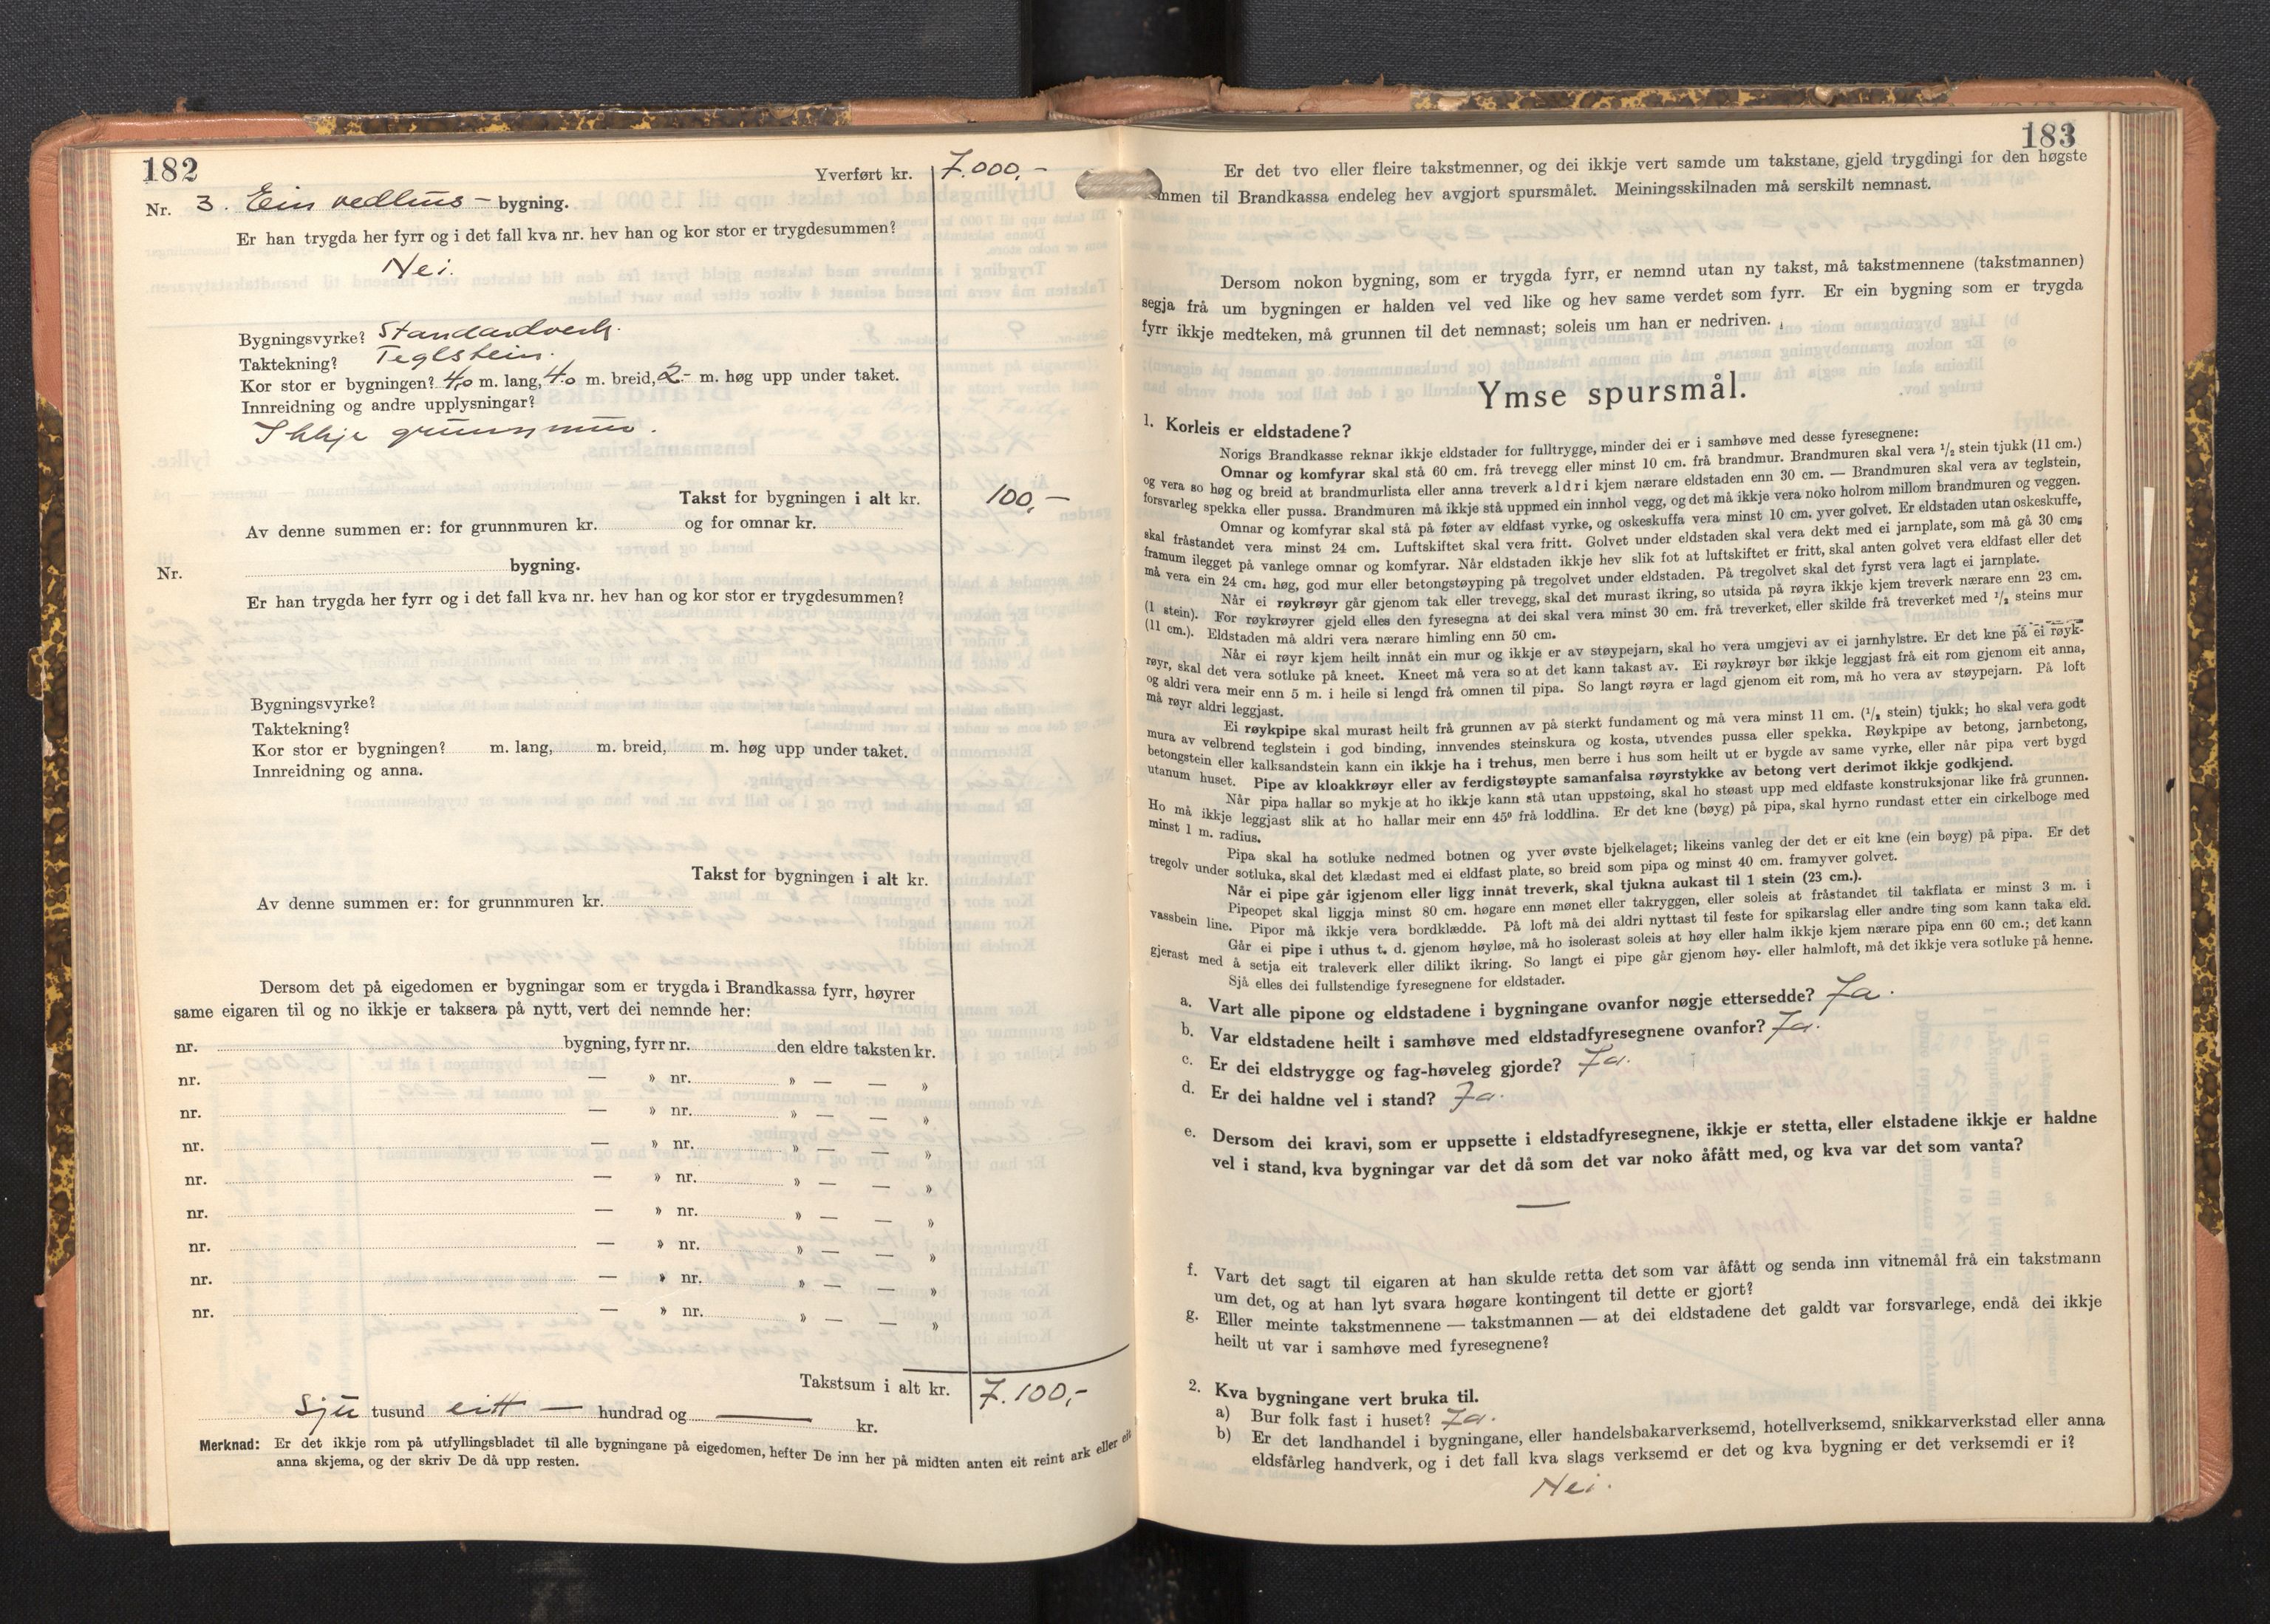 182
Yverført kr. 7.000,-
Nr. 3. Ein vedhus - bygning.
Er han trygda her fyrr og i det fall kva nr. hev han og kor stor er trygdesummen?
Nei.
Bygningsvyrke? Standardverk.
Taktekning? Teglstein.
Kor stor er bygningen? 4,0 m. lang, 4.0 m. breid, 2.- m. høg upp under taket.
Innreidning og andre upplysningar?
Ikkje grunnmur.
Takst for bygningen i alt kr. 100,-
Av denne summen er: for grunnmuren kr. og for omnar kr.
Nr. bygning.
Er han trygda her fyrr og i det fall kva nr. hev han og kor stor er trygdesummen?
Bygningsvyrke?
Taktekning?
Kor stor er bygningen? m. lang, m. breid, m. høg upp under taket.
Innreidning og anna.
Takst for bygningen i alt kr.
Av denne summen er: for grunnmuren kr.
Dersom det på eigedomen er bygningar som er trygda i Brandkassa fyrr, høyrer
same eigaren til og no ikkje er taksera på nytt, vert dei nemnde her:
nr. bygning, fyrr nr. den eldre taksten kr.
nr. — » nr. » — — »
nr. — » nr. » — — »
nr. — » nr. » — — »
nr. — » nr. » — — »
nr. — » nr. » — — »
nr. — » nr. » — — »
nr. — » nr. » — — »
nr. — » nr. » — — »
Takstsum i alt kr. 7.100,-
Sju tusund eitt — hundrad og — kr.
Merknad: Er det ikkje rom på utfyllingsbladet til alle bygningane på eigedomen, hefter De inn her på midten anten eit reint ark eller eit
anna skjema, og der skriv De då upp resten.
183
Er det tvo eller fleire takstmenner, og dei ikkje vert samde um takstane, gjeld trygdingi for den høgste
summen til Brandkassa endeleg hev avgjort spursmålet. Meiningsskilnaden må serskilt nemnast.
Dersom nokon bygning, som er trygda fyrr, er nemnd utan ny takst, må takstmennene (takstmannen)
segja frå um bygningen er halden vel ved like og hev same verdet som fyrr. Er ein bygning som er trygda
fyrr ikkje medteken, må grunnen til det nemnast; soleis um han er nedriven.
Ymse spursmål.
1. Korleis er eldstadene?
Norigs Brandkasse reknar ikkje eldstader for fulltrygge, minder dei er i samhøve med desse fyresegnene:
Omnar og komfyrar skal stå 60 cm. frå trevegg eller minst 10 cm. frå brandmur. Brandmuren skal vera 1/2 stein tjukk (11 cm.)
og vera so høg og breid at brandmurlista eller anna treverk aldri kjem nærare eldstaden enn 30 cm. — Brandmuren skal vera av teglstein,
forsvarleg spekka eller pussa. Brandmuren må ikkje stå uppmed ein innhol vegg, og det må ikkje vera noko holrom millom brandmuren og veggen.
Omnar og komfyrar skal stå på føter av eldfast vyrke, og oskeskuffa vera minst 10 cm. yver golvet. Er eldstaden utan oskeskuffe,
skal fråstandet vera minst 24 cm. Luftskiftet skal vera fritt. Golvet under eldstaden skal vera dekt med ei jarnplate, som må gå 30 cm.
framum ilegget på vanlege omnar og komfyrar. Når eldstaden ikkje hev slik fot at luftskiftet er fritt, skal anten golvet vera eldfast eller det
må vera ein 24 cm. høg, god mur eller betongstøyping på tregolvet under eldstaden. På tregolvet skal det fyrst vera lagt ei jarnplate.
Når ei røykrøyr går gjenom tak eller trevegg, skal det murast ikring, so utsida på røyra ikkje kjem treverk nærare enn 23 cm.
(1 stein). For røykrøyrer gjeld elles den fyresegna at dei skal vera minst 30 cm. frå treverket, eller skilde frå treverket med 1/2 steins mur
(11 cm.). Eldstaden må aldri vera nærare himling enn 50 cm.
Når ei røyr kjem heilt innåt ein mur og ikkje er av støypejarn, skal ho vera umgjevi av ei jarnhylstre. Er det kne på ei røyk-
røyr, skal det vera sotluke på kneet. Kneet må vera so at det kann takast av. Ei røykrøyr bør ikkje leggjast frå eit rom gjenom eit anna,
og aldri vera meir enn 5 m. i heile si lengd frå omnen til pipa. So langt røyra er lagd gjenom eit rom, må ho vera av støypejarn. På loft
må røyr aldri leggjast.
Ei røykpipe skal murast heilt frå grunnen av på sterkt fundament og må vera minst 11 cm. (1/2 stein) tjukk; ho skal vera godt
mura av velbrend teglstein i god binding, innvendes steinskura og kosta, utvendes pussa eller spekka. Røykpipe av betong, jarnbetong,
betongstein eller kalksandstein kann ein ikkje ha i trehus, men berre i hus som heilt ut er bygde av same vyrke, eller når pipa vert bygd
utanum huset. Pipe av kloakkrøyr eller av ferdigstøypte samanfalsa røyrstykke av betong vert derimot ikkje godkjend.
Når pipa hallar so mykje at ho ikkje kann stå utan uppstøing, skal ho støast upp med eldfaste konstruksjonar like frå grunnen.
Ho må ikkje leggjast slik at ho hallar meir enn 45° frå loddlina. Er det kne (bøyg) på pipa, skal hyrno rundast etter ein cirkelboge med
minst 1 m. radius.
Pipa skal ha sotluke nedmed botnen og yver øvste bjelkelaget; likeins vanleg der det er eit kne (ein bøyg) på pipa. Er det
tregolv under sotluka, skal det klædast med ei eldfast plate, so breid som pipa og minst 40 cm. framyver golvet.
Når ei pipe går igjenom eller ligg innåt treverk, skal tjukna aukast til 1 stein (23 cm.).
Pipeopet skal liggja minst 80 cm. høgare enn mønet eller takryggen, eller soleis at fråstandet til takflata er minst 3 m. i
vassbein line. Pipor må ikkje vera bordklædde. På loft må dei aldri nyttast til feste for spikarslag eller andre ting som kann taka eld.
Går ei pipe i uthus t. d. gjenom høyløe, må ho isolerast soleis at høy eller halm ikkje kjem nærare pipa enn 60 cm.; det kann
gjerast med å setja eit traleverk eller dilikt ikring. So langt ei pipe går gjenom høy- eller halmloft, må det ikkje vera sotluke på henne.
Sjå elles dei fullstendige fyresegnene for eldstader.
a. Vart alle pipone og eldstadene i bygningane ovanfor nøgje ettersedde? Ja.
b. Var eldstadene heilt i samhøve med eldstadfyresegnene ovanfor? Ja.
c. Er dei eldstrygge og fag-høveleg gjorde? Ja.
d. Er dei haldne vel i stand? Ja.
e. Dersom dei kravi, som er uppsette i eldstadfyresegnene, ikkje er stetta, eller elstadene ikkje er haldne
vel i stand, kva bygningar var det då som det var noko åfått med, og kva var det som vanta?
—
f. Vart det sagt til eigaren at han skulde retta det som var åfått og senda inn vitnemål frå ein takstmann
um det, og at han lyt svara høgare kontingent til dette er gjort?
g. Eller meinte takstmennene — takstmannen — at dei eldstadene det galdt var forsvarlege, endå dei ikkje
heilt ut var i samhøve med fyresegnene?
2. Kva bygningane vert bruka til.
a) Bur folk fast i huset? Ja.
b) Er det landhandel i bygningane, eller handelsbakarverksemd, hotellverksemd, snikkarverkstad eller anna
eldsfårleg handverk, og i det fall kva slags verksemd er det og kva bygning er det verksemdi er i?
Nei.